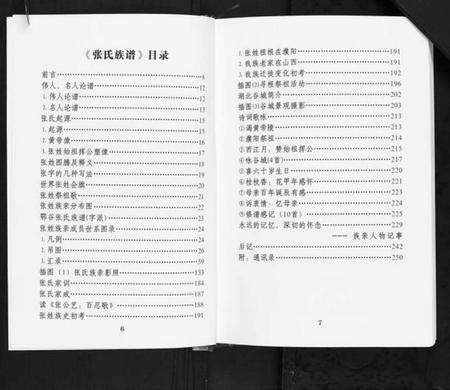 《张氏族谱》目录
前言……8
伟人、名人论谱……12
1.伟人论谱……12
2.名人论谱……13
张氏起源……15
1.起源……15
2.黄帝像……16
3.张姓始祖挥公塑像……17
张姓图腾及释义……18
张字的几种写法……19
世界张姓会旗……20
张姓祭祖歌……21
张姓族亲分布图……22
鄂谷张氏族谱(字派)……23
张姓族亲成员世系图录……24
1.凡例……24
2.吊图……26
3.汇录……59
插图(1)张氏族亲影照……133
张氏家训……184
张氏家戒……187
读《张公艺：百忍歌》……188
张姓族史初考……191
6
1.张姓祖根在濮阳……191
2.我族老家在山西……191
3.我族迁徙变化初考……191
插图(2)寻根祭祖活动……196
湖北谷城简介……202
插图(3)谷城景观摄影……203
诗词歌咏……213
①谒黄帝陵……213
②濮阳祭祖……213
③西江月：赞始祖挥公……213
④咏谷城(4首)……213
⑤喜六十岁生日……216
⑥桂枝香：花甲年感怀……217
⑦母亲百年诞辰有感……217
⑧诉衷情·忆母亲……218
⑨修谱感记(10首)……225
永远的记忆，深切的怀念……229
——族亲人物记事
后记……242
附：通讯录……250
7